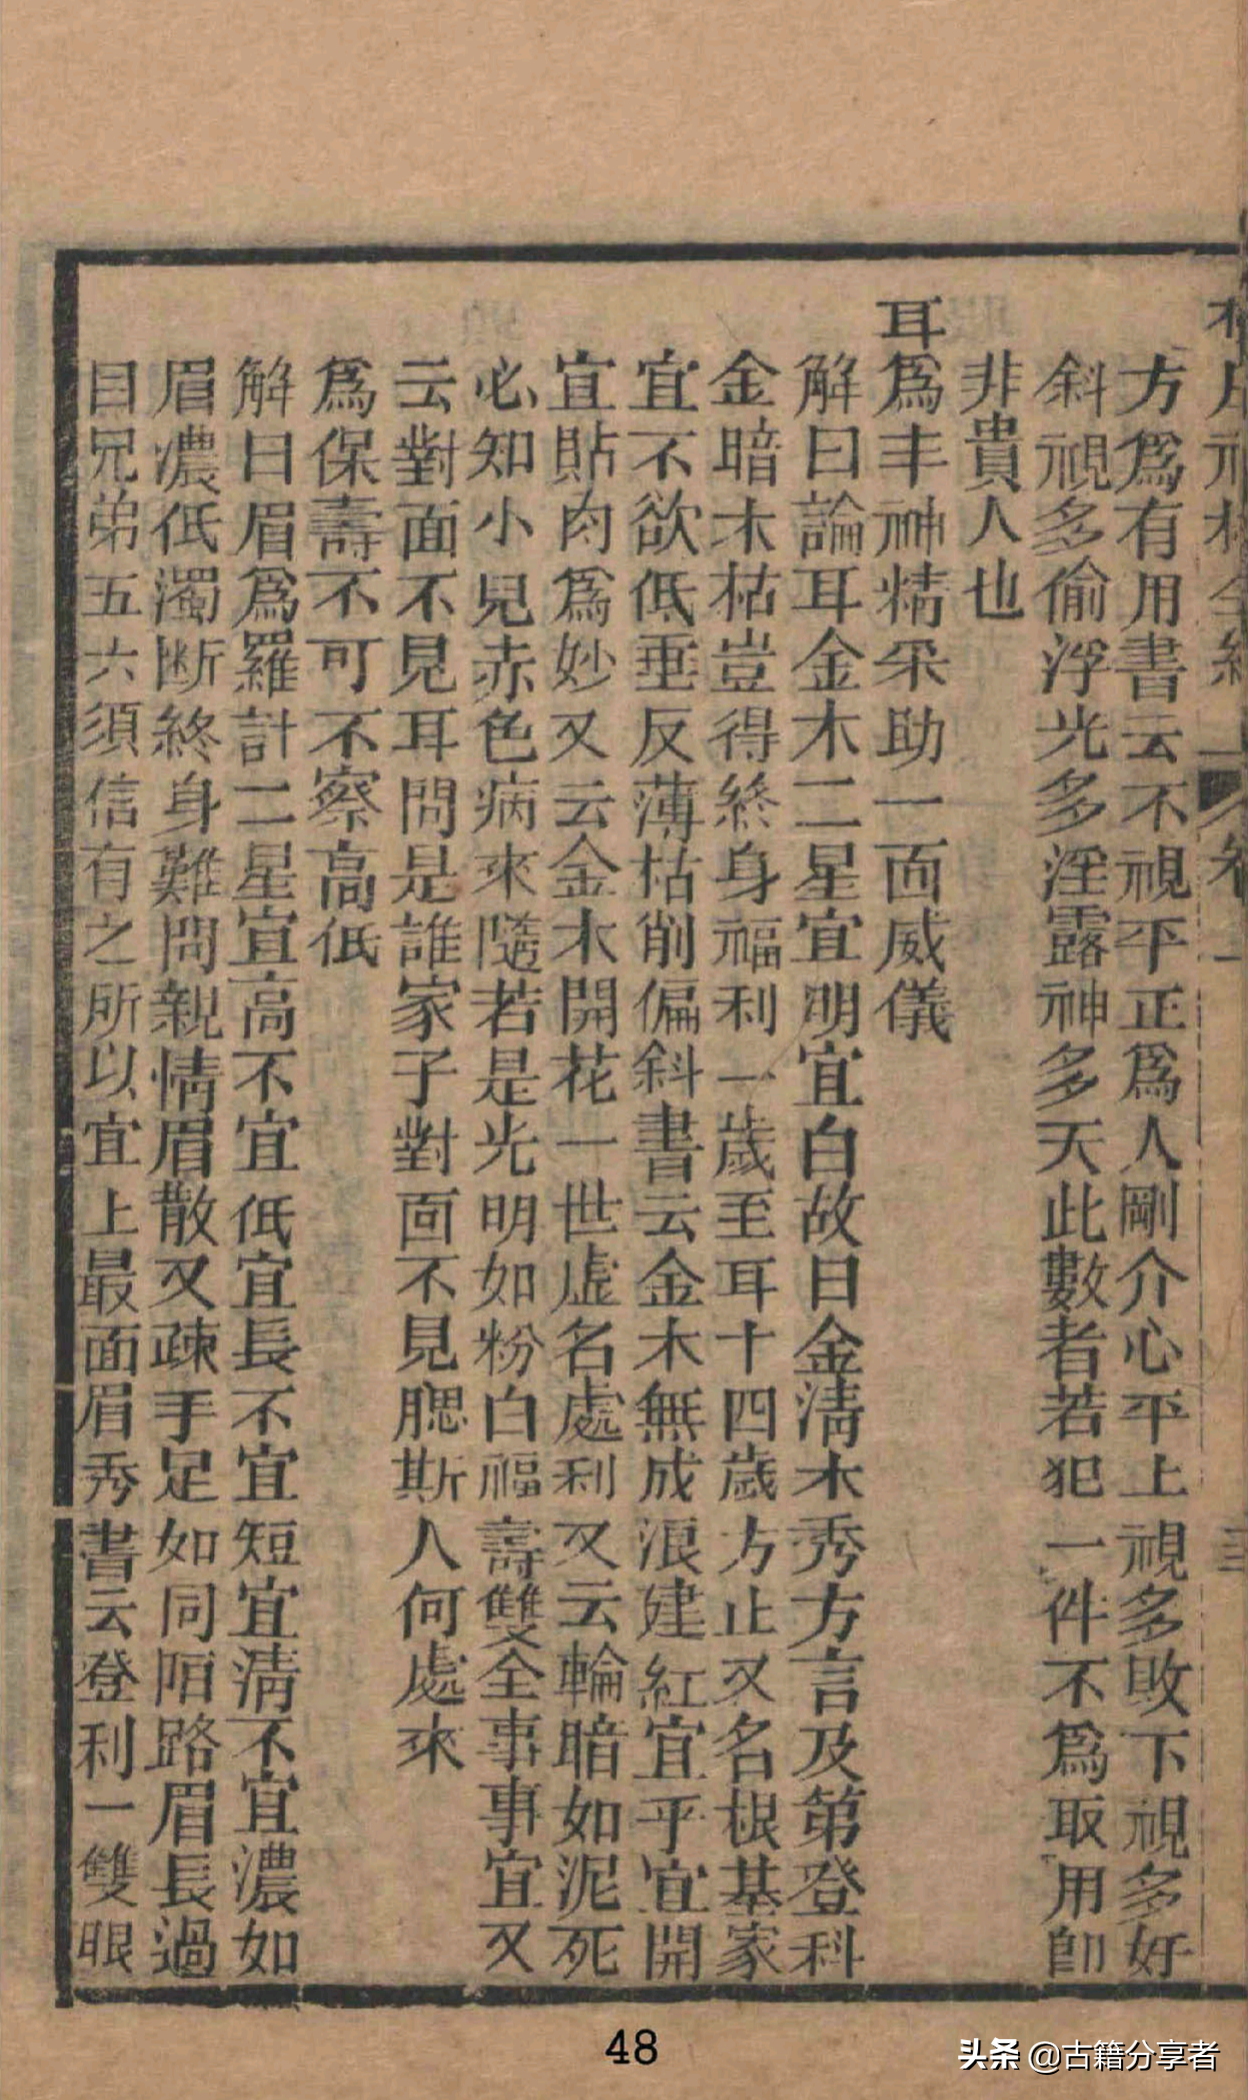 方爲有用書云不視平正爲人剛介心平上視多敗下視多好
斜視多偷浮光多淫露神多夭此數者若犯一件不爲取用卽
非貴人也
耳爲丰神精采助一面威儀
解曰論耳金木二星宜明宜白故曰金淸木秀方言及第登科
金暗木枯豈得終身福利一歲至耳十四歲方止又名根基家
宜不欲低垂反薄枯削偏斜書云金木無成浪建紅宜乎宜開
宜貼肉爲妙又云金木開花一世虛名處利又云輪暗如泥死
必知小兒赤色病來隨若是光明如粉白福壽雙全事事宜又
云對面不見耳問是誰家子對面不見腮斯人何處來
爲保壽不可不察高低
解曰眉爲羅計二星宜高不宜低宜長不宜短宜淸不宜濃如
眉濃低濁斷終身難問親情眉散又疎手足如同陌路眉長過
目兄弟五六須信有之所以宜上最面眉秀書云登利一雙眼
48
头条 @古籍分享者